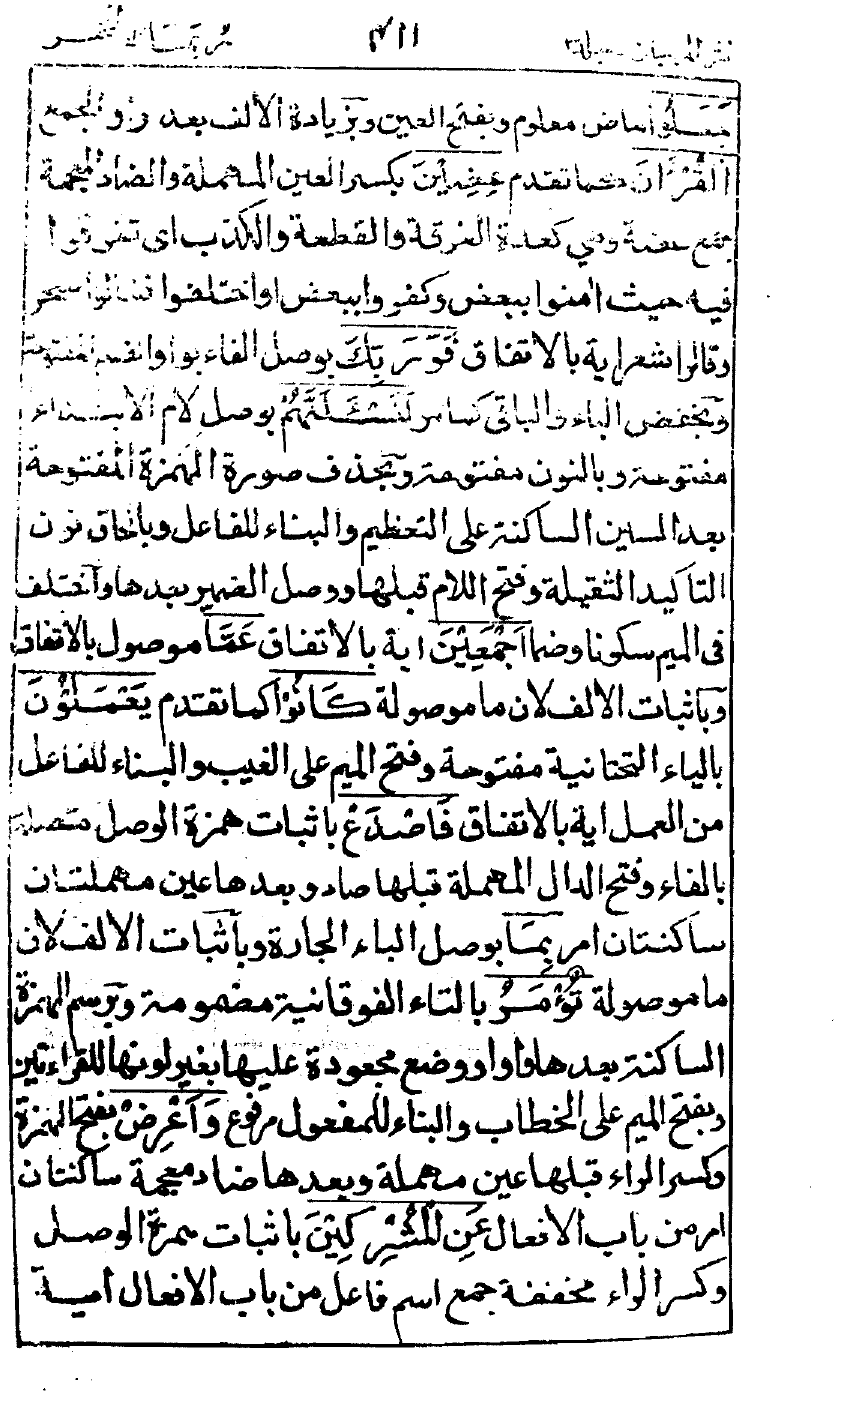 نثر المرجان جلد ٣
٣١١
جَعَلُوْا ماض معلوم وبفتح العين وبزيادة الألف بعد واو الجمع
الْقُرْاٰنَ كما تقدم عِضِيْنَ بكسر العين المهملة والضاد المعجمة
جمع عضة وهي كعدة الفرقة والقطعة والكذب اى تفرقوا
فيه حيث اٰمنوا ببعض وكفروا ببعض او اختلفوا فقالوا سحر
وقالوا شعر اٰية بالاتفاق فَوَرَبِّكَ بوصل الفاء بواو القسم المفتوحة
وبخفض الباء والباقى كما مر لَنَسْئَلَنَّهُمْ بوصل لام الابتداء
مفتوحة وبالنون مفتوحة وبحذف صورة الهمزة المفتوحة
بعد السين الساكنة على التعظيم والبناء للفاعل وبالحاق نون
التاكيد الثقيلة وفتح اللام قبلها ووصل الضمير بعدها واختلف
فى الميم سكونا وضما اَجْمَعِيْنَ اية بالاتفاق عَمَّا موصول بالاتفاق
وباثبات الالف لان ما موصولة كَانُوْا كما تقدم يَعْمَلُوْنَ
بالياء التحتانية مفتوحة وفتح الميم على الغيب والبناء للفاعل
من العمل اية بالاتفاق فَاصْدَعْ باثبات همزة الوصل متصلة
بالفاء وفتح الدال المهملة قبلها صاد وبعدها عين مهملتان
ساكنتان امر بِمَا بوصل الباء الجارة وباثبات الالف لان
ما موصولة تُؤْمَرُ بالتاء الفوقانية مضمومة وبرسم الهمزة
الساكنة بعدها واوا ووضع مجعودة عليها بغير لونها للقراءتين
وبفتح الميم على الخطاب والبناء للمفعول مرفوع وَاَعْرِضْ بفتح الهمزة
وكسر الراء قبلها عين مهملة وبعدها ضاد معجمة ساكنتان
امر من باب الافعال عَنِ الْمُشْرِكِيْنَ باثبات همزة الوصل
وكسر الراء مخففة جمع اسم فاعل من باب الافعال اٰية